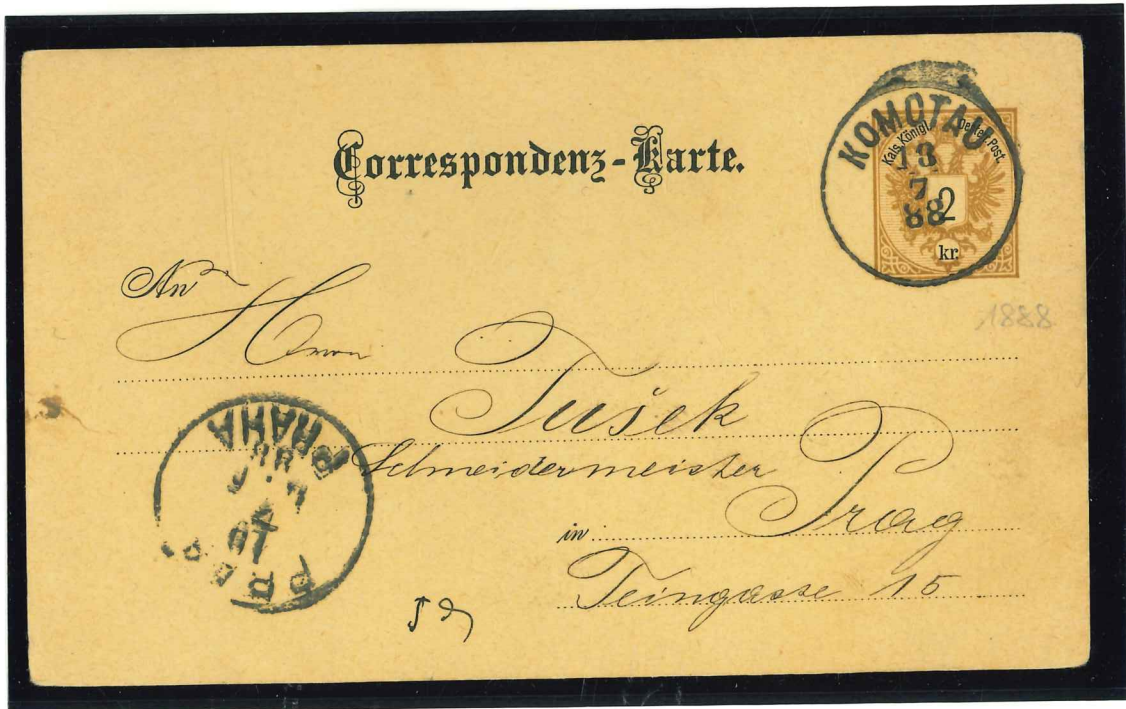 Correspondenz-Karte.
KOMOTAU
13
7
88
Kais. Königl. Oesterr. Post.
2
kr.
1888
An
Herrn
Tušek
Schneidermeister
in Prag
Teingasse 15
PRAHA
88
PRAG